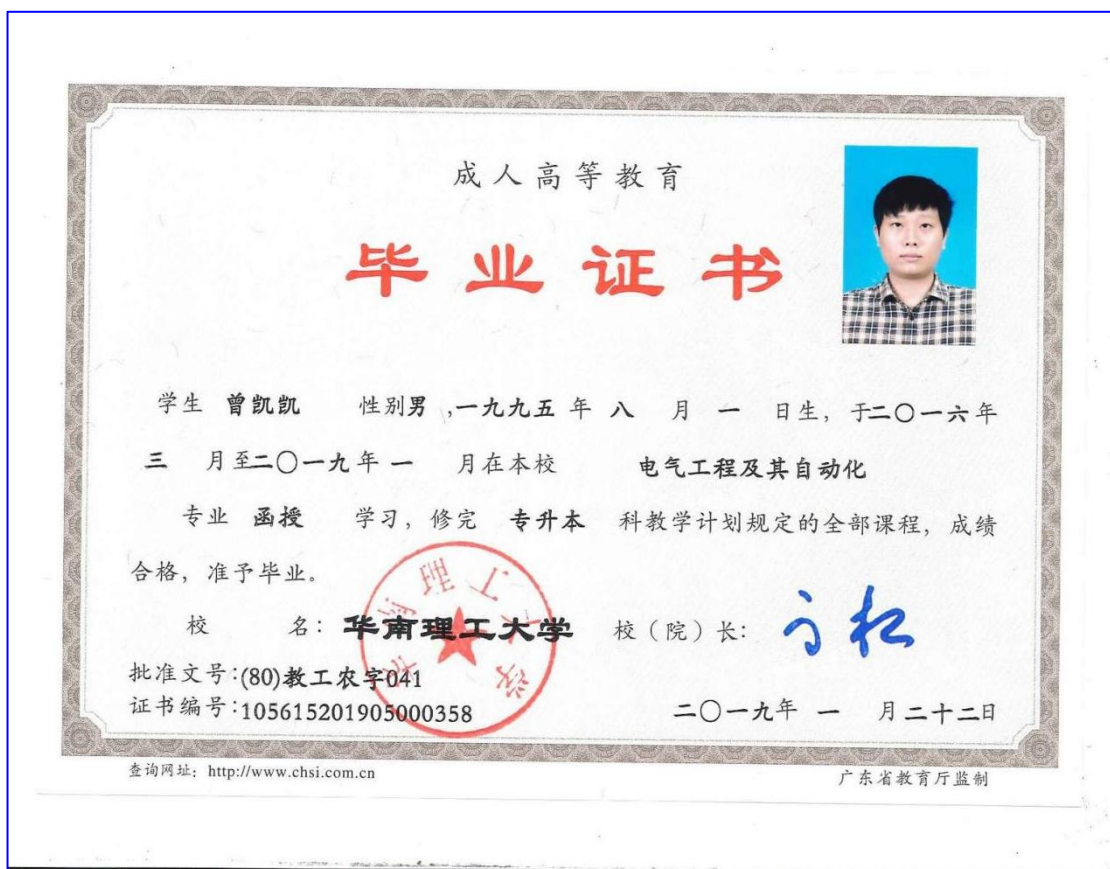 成人高等教育
毕业证书
学生 曾凯凯 性别男 ,一九九五年 八 月 一 日生，于二〇一六年
三 月至二〇一九年 一 月在本校 电气工程及其自动化
专业 函授 学习，修完 专升本 科教学计划规定的全部课程，成绩
合格，准予毕业。
校 名：华南理工大学 校（院）长：
华南理工大学
批准文号:(80)教工农字041
证书编号:105615201905000358
二〇一九年 一 月二十二日
查询网址：http://www.chsi.com.cn
广东省教育厅监制